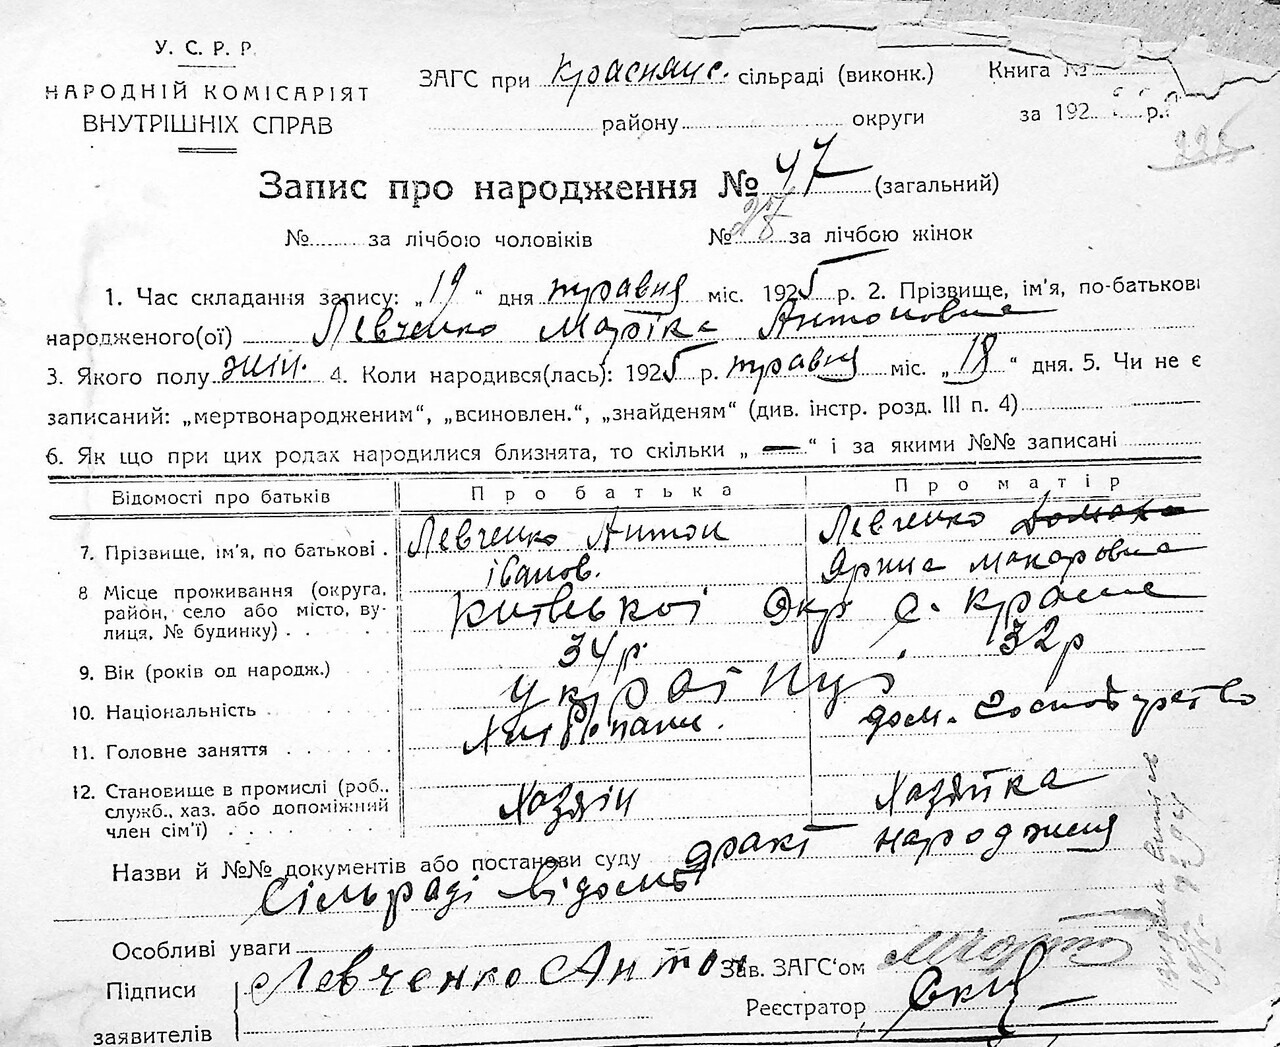 У. С. Р. Р.
НАРОДНІЙ КОМІСАРІЯТ
ВНУТРІШНІХ СПРАВ
ЗАГС при Краснянс. сільраді (виконк.) Книга №
району округи за 192 р.
Запис про народження № 47 (загальний)
№ за лічбою чоловіків № 28 за лічбою жінок
1. Час складання запису: „19“ дня травня міс. 1925 р. 2. Прізвище, ім'я, по-батькові
народженого(ої) Левченко Марійка Антоновна
3. Якого полу жін. 4. Коли народився(лась): 1925 р. травня міс. „18“ дня. 5. Чи не є
записаний: „мертвонародженим“, „всиновлен.“, „знайденям“ (див. інстр. розд. III п. 4)
6. Як що при цих родах народилися близнята, то скільки „ — “ і за якими №№ записані
Відомості про батьків Про батька Про матір
7. Прізвище, ім'я, по батькові . Левченко Антон Іванов. Левченко Домаха Ярина Макаровна
8 Місце проживання (округа, район, село або місто, вулиця, № будинку) . . Київської Окр. с. Красне
9. Вік (років од народж.) 34 р. 32 р
10. Національність Українці
11. Головне заняття Хліборобств. дом. господурство
12. Становище в промислі (роб., служб., хаз. або допоміжний член сім'ї) Хазяїн Хазяйка
Назви й №№ документів або постанови суду факт народженя
сільраді відомо
Особливі уваги
Підписи Левченко Антон Зав. ЗАГС'ом
заявителів Реєстратор